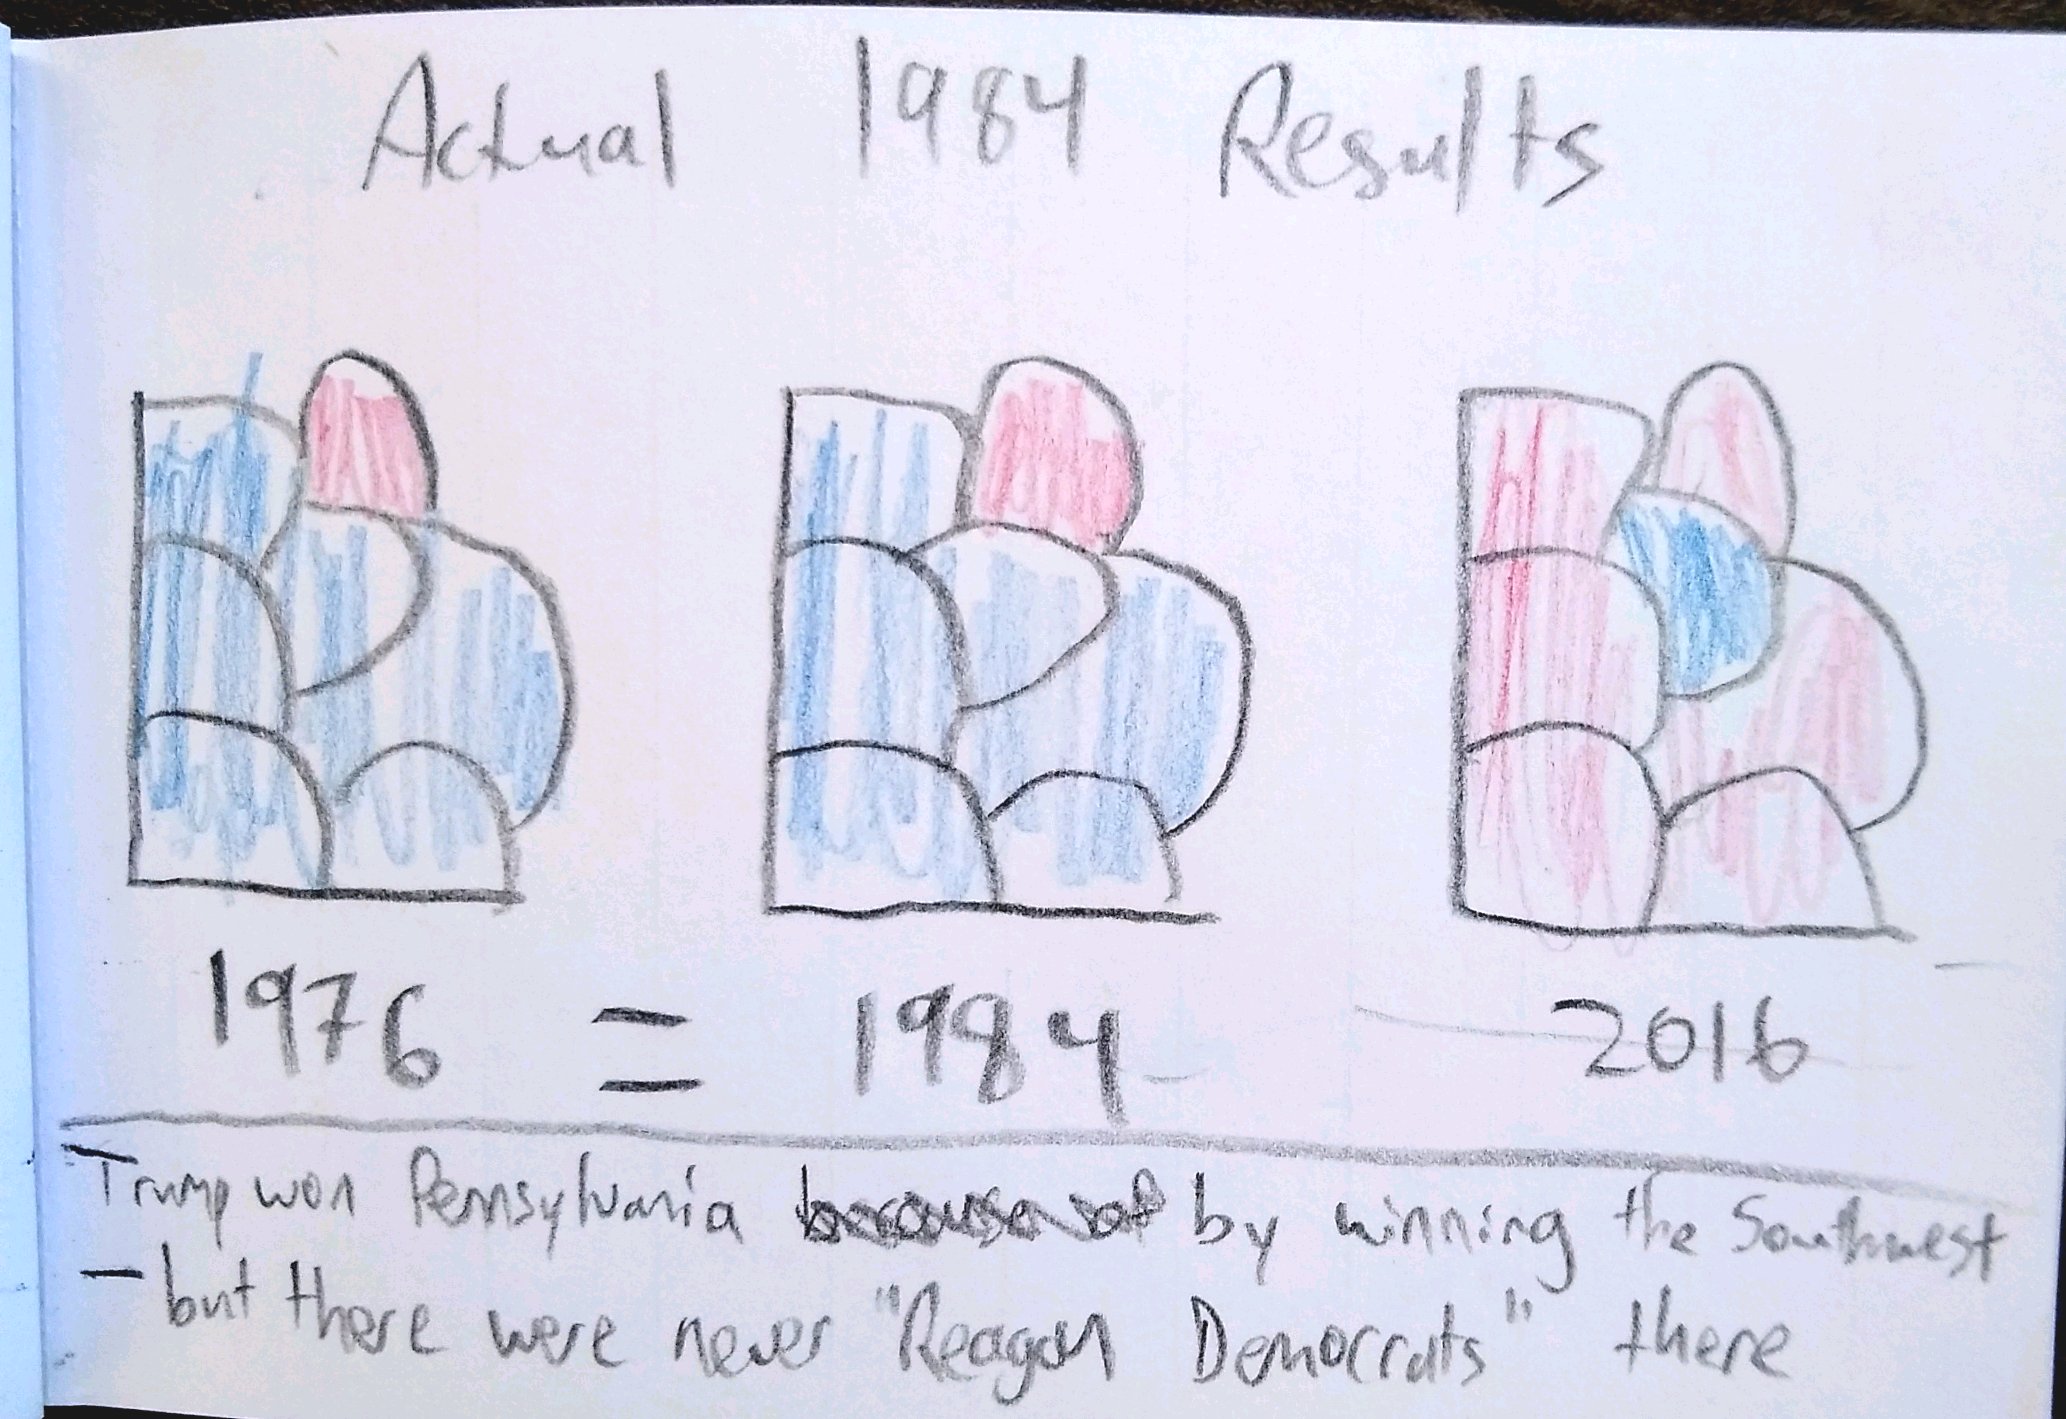 Actual 1984 Results
1976 = 1984 2016
Trump won Pennsylvania by winning the Southwest
- but there were never "Reagan Democrats" there